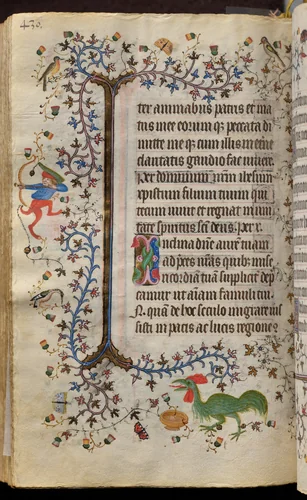 430.
ter animabus patris et ma
tris mee eorum q3 peccata di
mitte me q3 cum illis in eterne
claritatis gaudio fac vivere.
Per dominum nrm ihesum
xpistum filium tuum qui
tecum vivit et regnat in uni
tate spiritus sci deus. per x.
Inclina dne aurē tuam
ad pces nr̄as quib3 mise
ricordiā tuā supplicit̄ dep̄
camur ut aīam famuli tui
N. quā de hoc seculo migrare ius
sisti in pacis ac lucis regione